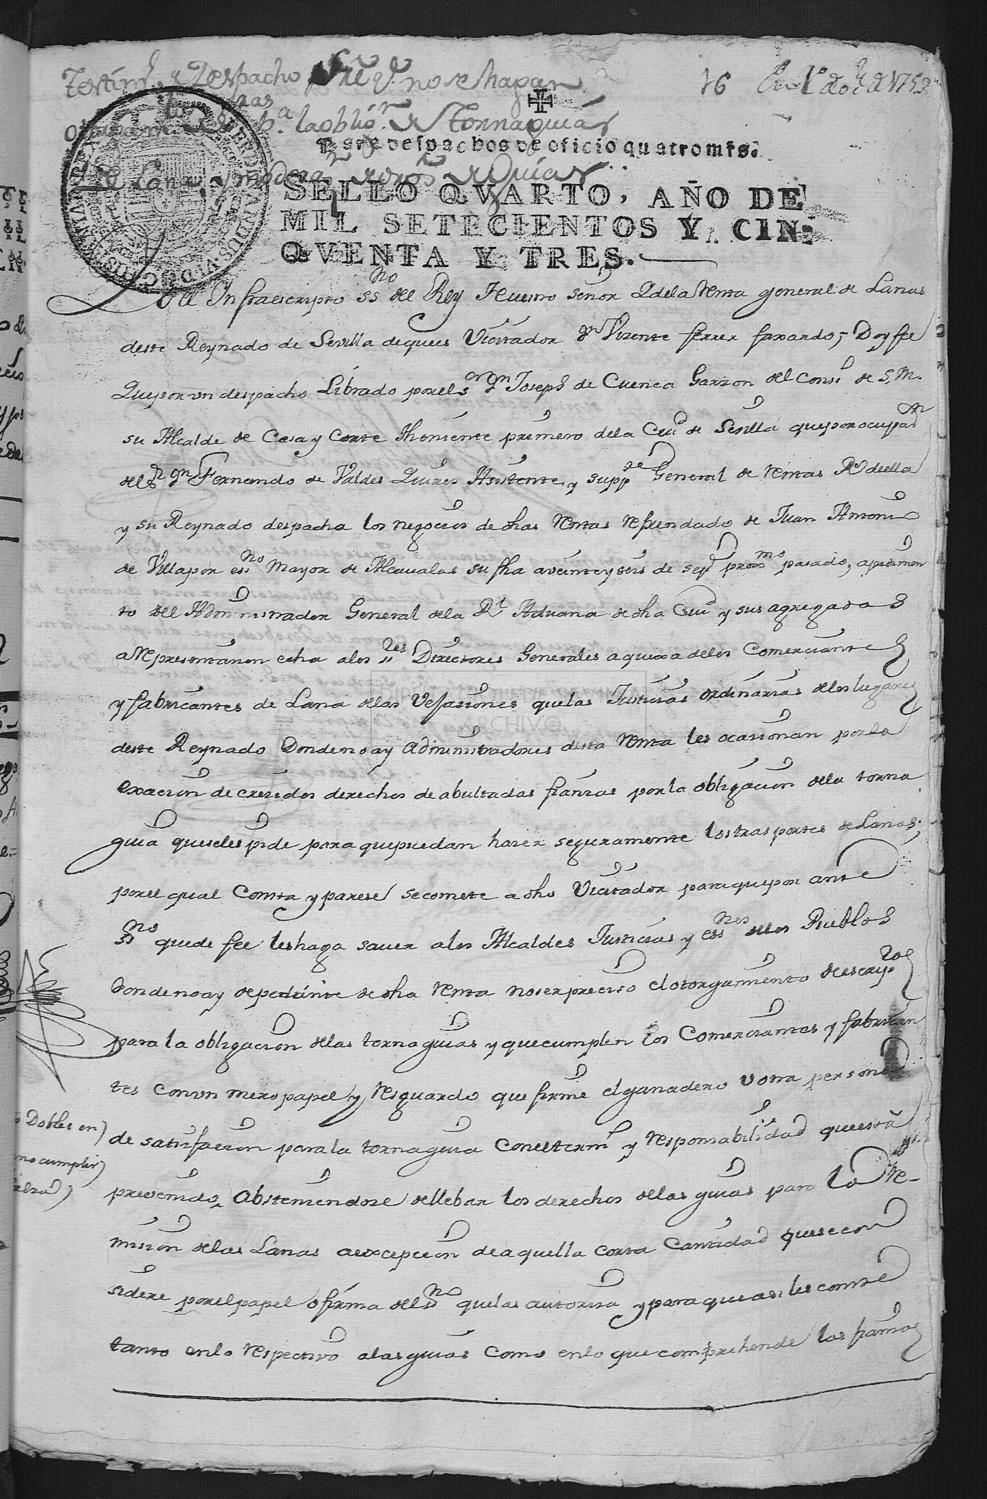 Testim.º y Despacho Sre q no se hagan
16
en 1º de 8 de 1753
la oblig.n de Tornaguías
Para despachos de oficio quatro mrs.
de Lana, y dros de Guías
SELLO QVARTO, AÑO DE
MIL SETECIENTOS Y CIN-
QVENTA Y TRES.
Yo el Infraescripto ssno del Rey Nuestro Señor I dela Renta general de Lanas
deste Reynado de Sevilla de que es Visitador Dn Vizente ferrer faxardo, Doy fee
Que por un despacho Librado por el sor Dn Joseph de Cuenca Garzon del Cons.º de S. M.
su Alcalde de Casa y Corte Theniente primero dela Ciud de Sevilla que por ocupasn
del sr Dn Fernando de Valdes Quiros Asistente, y supptte General de Rentas Rs de ella
y su Reynado despacha los negocios de dhas Rentas Refrendado de Juan Antonio
de Villapor essno Mayor de Alcaualas su fha a veinte y seis de sepre proxmo pasado, a pedimen
to del Administrador General dela Rl Aduana de dha Ciud y sus agregados
a Representazion echa a los sres Directores Generales a quexa delos Comerciantes
y fabricantes de Lana delas Vejasiones que las Justicias ordinarias delos lugares
deste Reynado Donde no ay Administradores desta Renta les ocasionan por la
exacion de cresidos derechos de abultadas fianzas por la obligacion dela torna
guia que se les pide para que puedan hazer seguramente los trasportes de Lanas;
por el qual Consta y parese se comete a dho Visitador para que por ante
ssno que de fee les haga saver a los Alcaldes Justicias y essnos delos Pueblos
donde no ay dependiente de dha Renta no ser preciso el otorgamiento de escripras
para la obligacion delas tornaguias y que cumplen los Comerciantes y fabrican
tes con un mero papel y Resguardo que firme el ganadero u otra persona
de satisfacion para la tornaguia con el termº y responsabilidad que está
prevenido, absteniendose de llebar los derechos delas guias para la Re-
mision delas Lanas a excepcion de aquella corta Cantidad que se con
sidere por el papel o firma del ssno que las autoriza y para que asi les conste
tanto en lo respectivo a las guias como en lo que comprehende las fianzas
Dobles en
no cumplir